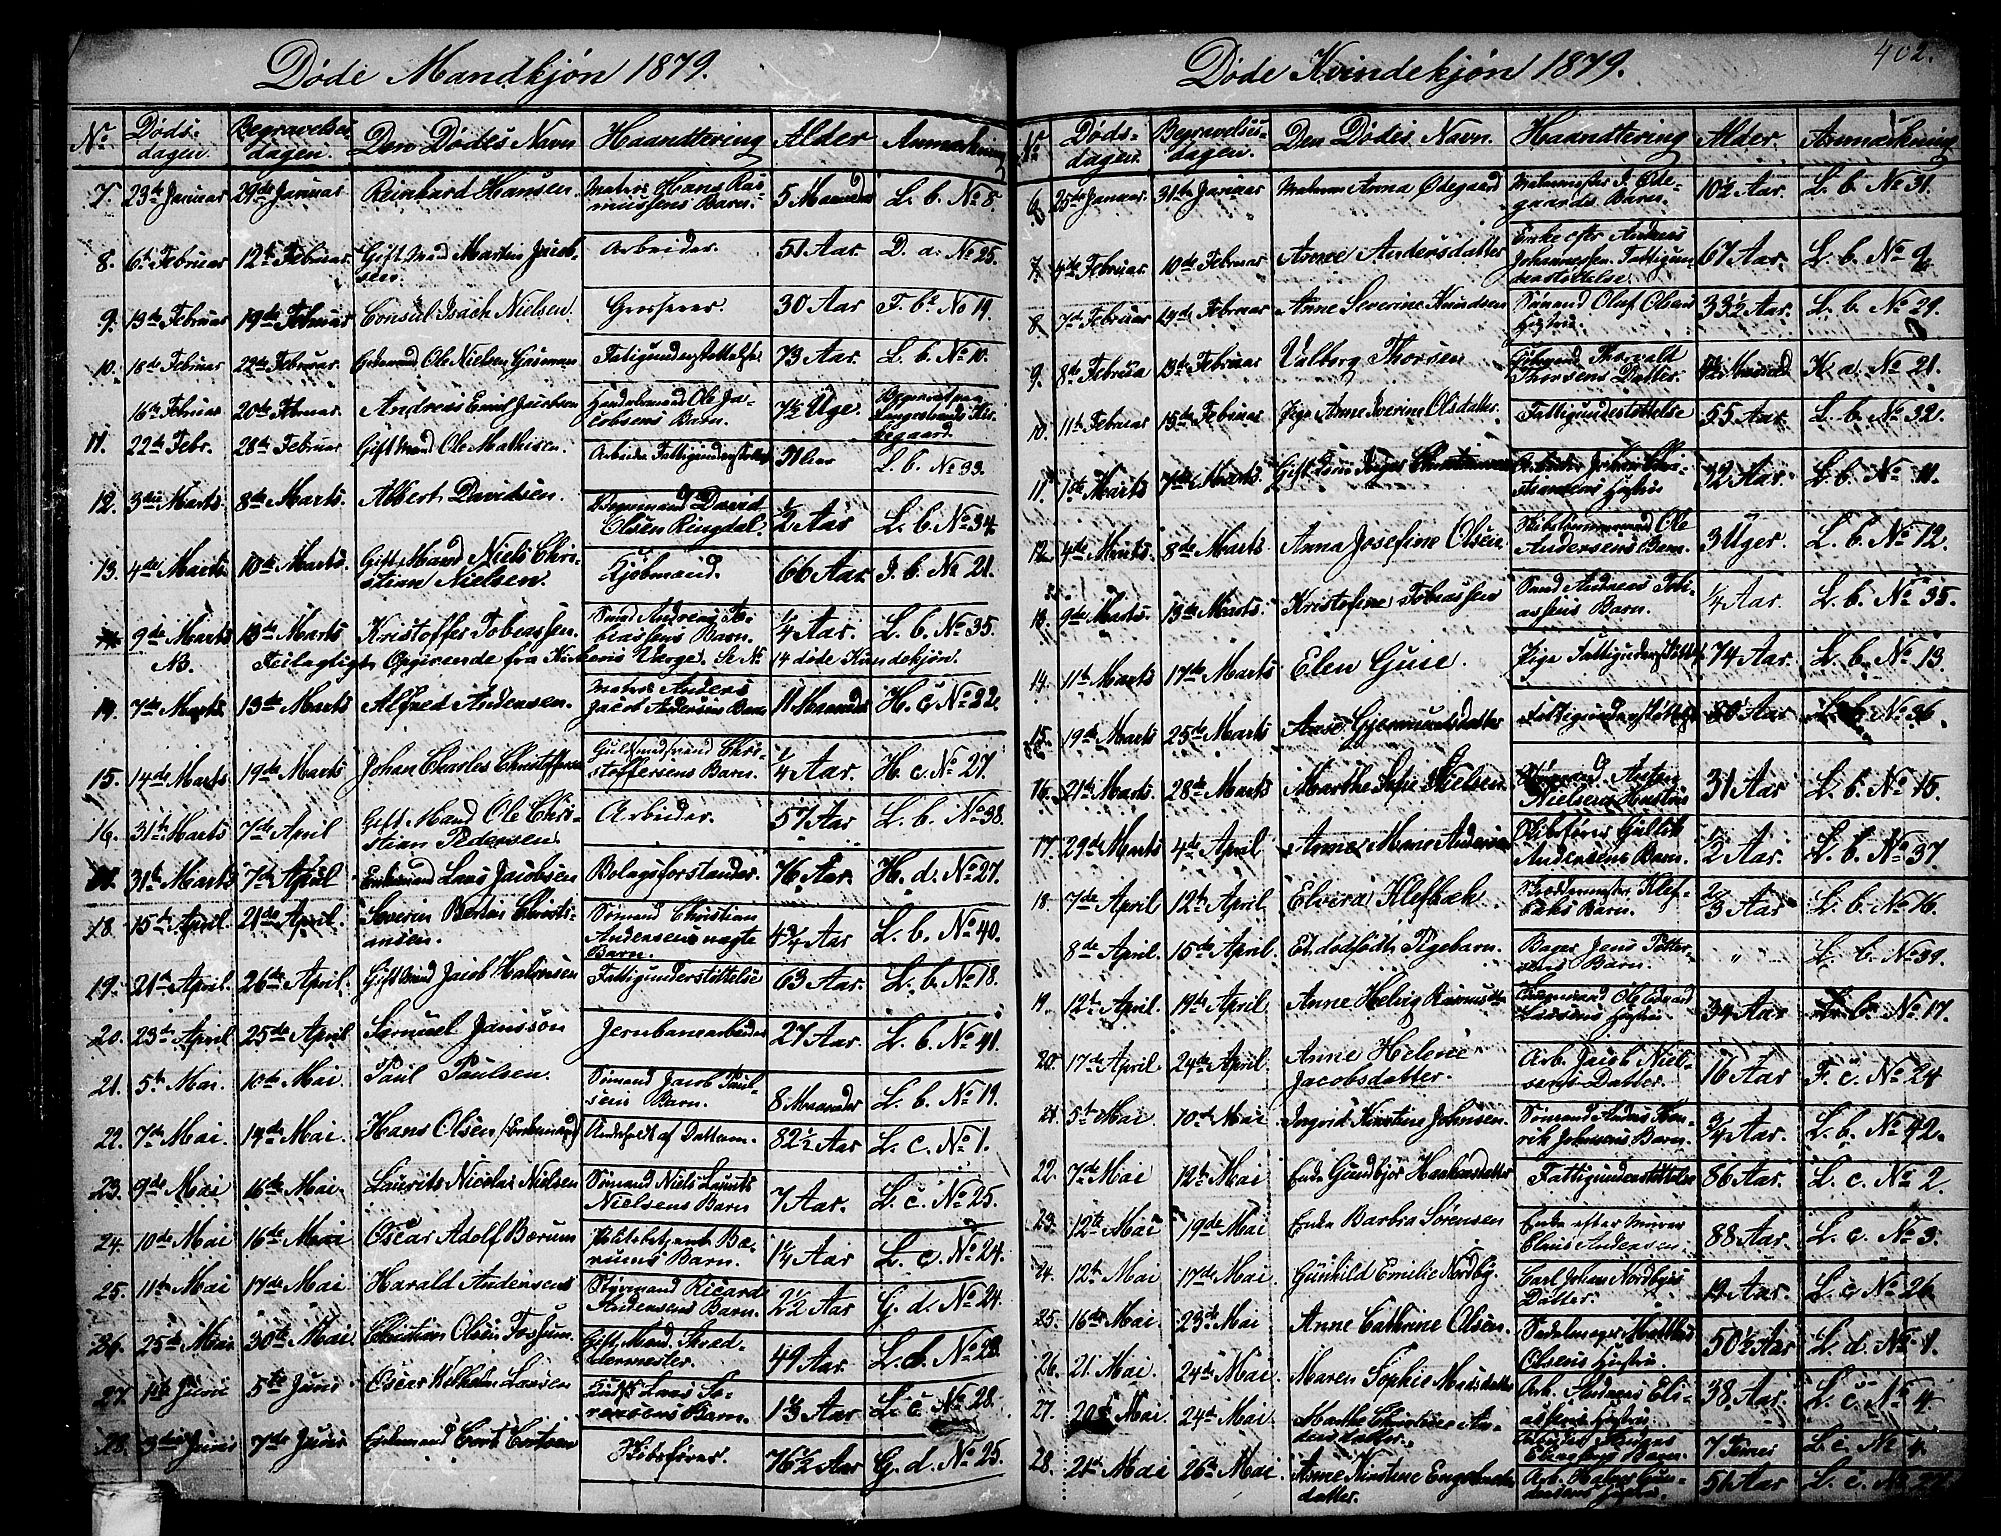 402.
Døde Mandkjøn 1879.
No Døds-dagen. Begravelses dagen. Den Dødes Navn Haandtering Alder Anmærkning
7. 23de Januar 29de Januar Reinhard Hansen. Matros Hans Rasmussens Barn. 5 Maaneder L. b. No 8.
8. 6te Februar 12te Februar. Gift Mand Martin Jacobsen. Arbeider. 51 Aar D. a. No 25.
9. 13de Februar 19de Februar Consul Isach Nielsen. Grosserer. 30 Aar F. b. No 19.
10. 18de Februar 22de Februar. Ole Nielsen Fattigunderstøttelse. 73 Aar. L. b. No 10.
16de Februar 20de Februar. Andreas Emil Jacobsen Ole Jacobsens Barn. 7½ Uge. Begravet paa Kirkegaard.
11. 22de Febr. 28de Februar Gift Mand Ole Mathisen. Arbeider Fattigunderstøttelse L. b. No 33.
12. 3die Marts 8de Marts. Albert Davidsen. David Olsen Ringdal. ½ Aar L. b. No 34.
13. 4de Marts 10de Marts. Gift Mand Niels Christian Nielsen. Kjøbmand. 66 Aar. J. b. No 21.
9de Marts 13de Marts Kristoffer Tobiassen. Smed Andreas Tobiassens Barn. ¼ Aar. L. b. No 35.
NB. Feilagtigt Opgivende fra Kirkens Værge. Se No 14 døde Kvindekjøn.
14. 7de Marts 13de Marts Alfred Andersen. Matros Anders Jacob Andersens Barn 11 Maaneder H. c. No 22.
15. 14de Marts 19de Marts Johan Charles Christoffersen Christoffersens Barn. ¼ Aar. H. c. No 27.
16. 31te Marts 7de April Gift Mand Ole Christian Pedersen. Arbeider. 57 Aar L. b. No 38.
31te Marts 7de April Enkemand Lars Jacobsen Bolagsforstander. 76 Aar. H. d. No 27.
18. 15de April. 21de April. Severin Bertin Christiansen. Sømand Christian Andersens uægte Barn. 4¾ Aar L. b. No 40.
19. 21de April. 26de April. Gift Mand Jacob Halvorsen Fattigunderstøttelse 63 Aar. L. b. No 18.
20. 23de April 25de April Samuel Jansson Jernbanearbeider 27 Aar. L. b. No 41.
21. 5te Mai. 10de Mai Paul Paulsen. Sømand Jacob Paulsens Barn. 8 Maaneder L. b. No 19.
22. 7de Mai. 14de Mai. Hans Olsen /Enkemand/ af Datteren. 82½ Aar L. c. No 1.
23. 9de Mai 16de Mai. Laurits Nicolai Nielsen Sømand Niels Laurits Nielsens Barn 7 Aar. L. c. No 25.
24. 10de Mai 16de Mai Oscar Adolf Bærum Politibetjent Bærums Barn. 1¼ Aar L. c. No 24.
25. 11te Mai 17de Mai Harald Andersens Styrmand Ricard Andersens Barn. 2½ Aar G. d. No 24.
26. 25de Mai 30te Mai. Christian Olsen Fossum Gift Mand. Skræddermester. 49 Aar. L. d. No 28.
27. 1ste Juni 5te Juni Oscar Wilhelm Larsen Lars Larsens Barn. 1½ Aar L. c. No 28.
28. 3die Juni 7de Juni Enkemand Skibsfører. 76½ Aar G. d. No 25.
Døde Kvindekjøn 1879.
No Døds-dagen. Begravelses-dagen. Den Dødes Navn. Haandtering Alder. Anmærkning
6. 25de Januar. 31te Januar Anna Ødegaard Ødegaards Barn. 10½ Aar. L. b. No 31.
7. 4de Februar. 10de Februar Anne Andersdatter Enke efter Anders Johannessen. Fattigunderstøttelse. 67 Aar. L. b. No 9.
8. 7de Februar 14de Februar Anne Severine Knudsen Sømand Oluf Olsens Hustru. 33½ Aar. L. b. No 29.
9. 8de Februa 13de Februar Valborg Thorsen Thorvald Thorsens Datter. H. a. No 21.
10. 11te Februar 15de Februar Pige Anne Iverine Olsdatter. Fattigunderstøttelse 55 Aar. L. b. No 32.
11. 1ste Marts 7de Marts. Arbeider Johan Christiansens Hustru 32 Aar. L. b. No 11.
12. 4de Marts. 8de Marts. Anna Josefine Olsen. Ole Andersens Barn. 3 Uger. L. b. No 12.
13. 9de Marts. 13de Marts. Kristofine Tobiassen Smed Andreas Tobiassens Barn. ¼ Aar. L. b. No 35.
14. 11te Marts 17de Marts Elen Guse. Pige Fattigunderstøttet 74 Aar. L. b. No 13.
15. 19de Marts 25de Marts Anne Gjermundsdatter Fattigunderstøttelse Aar L. b. No 36.
16. 21te Marts. 28de Marts Marthe Sofie Nielsen. Sømand Anton Nielsens Hustru 31 Aar L. b. No 15.
17. 29de Marts 4de April Anne Marie Andersen Skibsfører Gullik Andersens Barn. ½ Aar. L. b. No 37.
18. 7de April 12te April. Elvira Klefbæk Klefbæks Barn. ⅔ Aar L. b. No 16.
8de April. 15de April. Et dødfødt Pigebarn. Bager Jens Pettersens Barn. " L. b. No 39.
19. 12te April. 19de April. Anne Helvig Rasmusdtr. Ole Edvard Larsens Hustru 34 Aar L. b. No 17.
20. 17de April 24de April. Anne Helene Jacobsdatter. Arb. Jacob Nielsens Datter. 16 Aar F. c. No 24
21. 5te Mai 10de Mai Ingrid Kirstine Johnsen. Sømand Anders Henrik Johnsens Barn. ¾ Aar. L. b. No 42.
22. 7de Mai 12te Mai Enke Gundbjør Haakensdatter Fattigunderstøttelse 86 Aar. L. c. No 2.
23. 12te Mai 19de Mai Enke Barbra Sørensen Enke efter Murer Claus Andersen. 88 Aar L. c. No 3.
24. 12te Mai 17de Mai Gunhild Emilie Nordby. Carl Johan Nordbyes Datter. Aar. L. c. No 26.
25. 16de Mai 23de Mai Anne Cathrine Olsen. Sadelmager Olsens Hustru. 50½ Aar L. d. No 1.
26. 21. Mai. 24de Mai. Maren Sophie Madsdatter Arb. Andreas Eliassens Hustru 38 Aar. L. c. No 4
27. 20de Mai 24de Mai Marthe Christine Andersdatter. Barn. 7 Timer L. c. No 4.
28. 21de Mai 26te Mai. Anne Kirstine datter. Arb. Hustru. 51 Aar L. c. No 27.